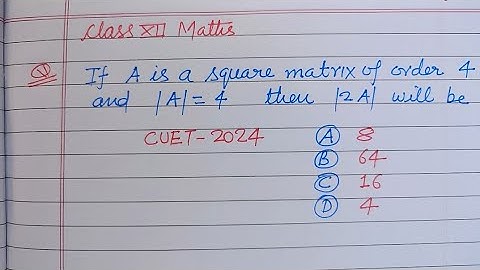 Class XII Maths
Q If A is a square matrix of order 4
and |A| = 4 then |2A| will be
CUET-2024 A 8
B 64
C 16
D 4